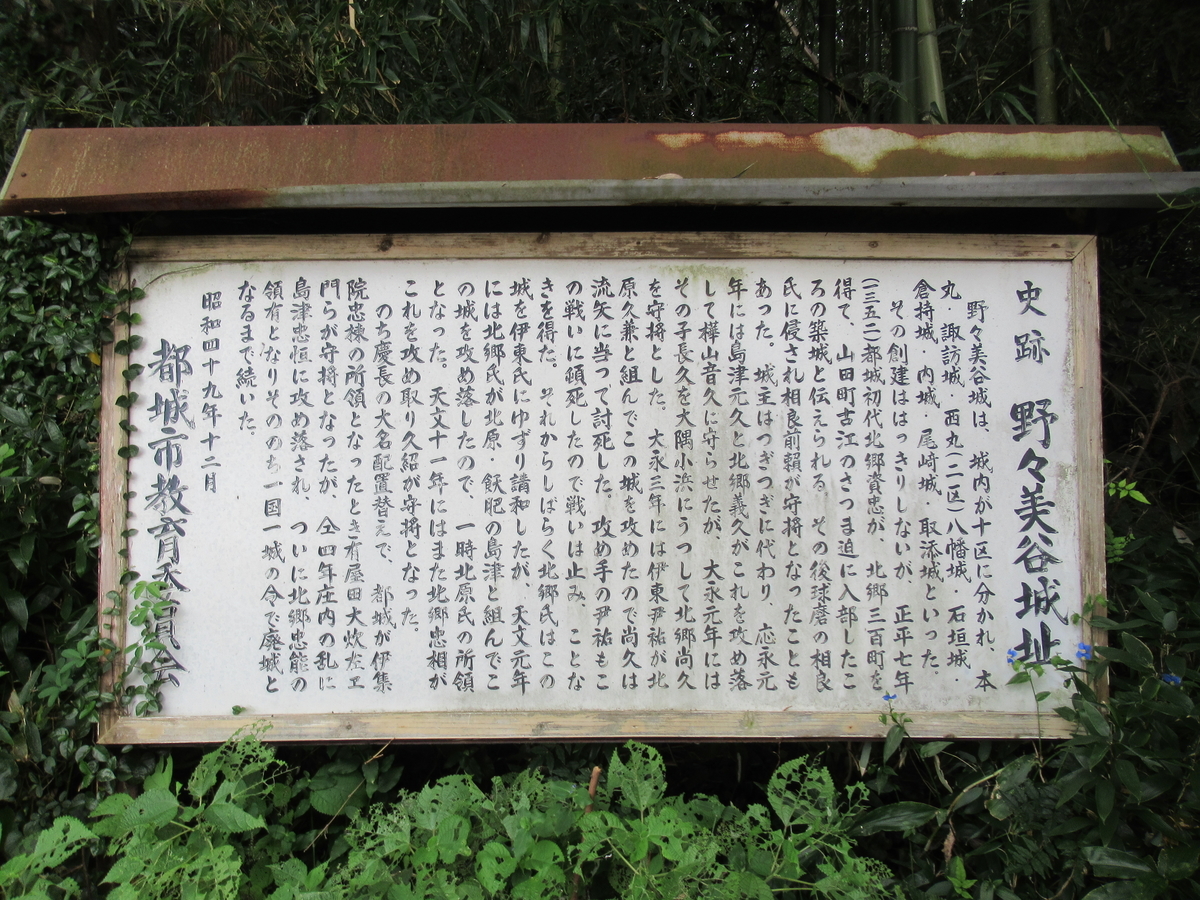 史跡 野々美谷城址
野々美谷城は、城内が十区に分かれ、本
丸・諏訪城・西丸(二区)八幡城・石垣城・
倉持城・内城・尾崎城・取添城といった
その創建ははっきりしないが、正平七年
(一三五二)都城初代北郷資忠が、北郷三百町を
得て、山田町古江のさつま迫に入部したこ
ろの築城と伝えられる。その後球磨の相良
氏に侵され相良前頼が守将となったことも
あった。城主はつぎつぎに代わり、応永元
年には島津元久と北郷義久がこれを攻め落
して樺山音久に守らせたが、大永元年には
その子長久を大隅小浜にうつして北郷尚久
を守将とした。大永三年には伊東尹祐が北
原久兼と組んでこの城を攻めたので尚久は
流矢に当って討死した。攻め手の尹祐もこ
の戦いに頓死したので戦いは止み、ことな
きを得た。それからしばらく北郷氏はこの
城を伊東氏にゆずり講和したが、天文元年
には北郷氏が北原・飫肥の島津と組んでこ
の城を攻め落したので、一時北原氏の所領
となった。天文十一年にはまた北郷忠相が
これを攻め取り久紹が守将となった。
のち慶長の大名配置替えで、都城が伊集
院忠棟の所領となったとき有屋田大炊左ェ
門らが守将となったが、仝四年庄内の乱に
島津忠恒に攻め落され、ついに北郷忠能の
領有となりそののち一国一城の令で廃城と
なるまで続いた。
昭和四十九年十二月
都城市教育委員会